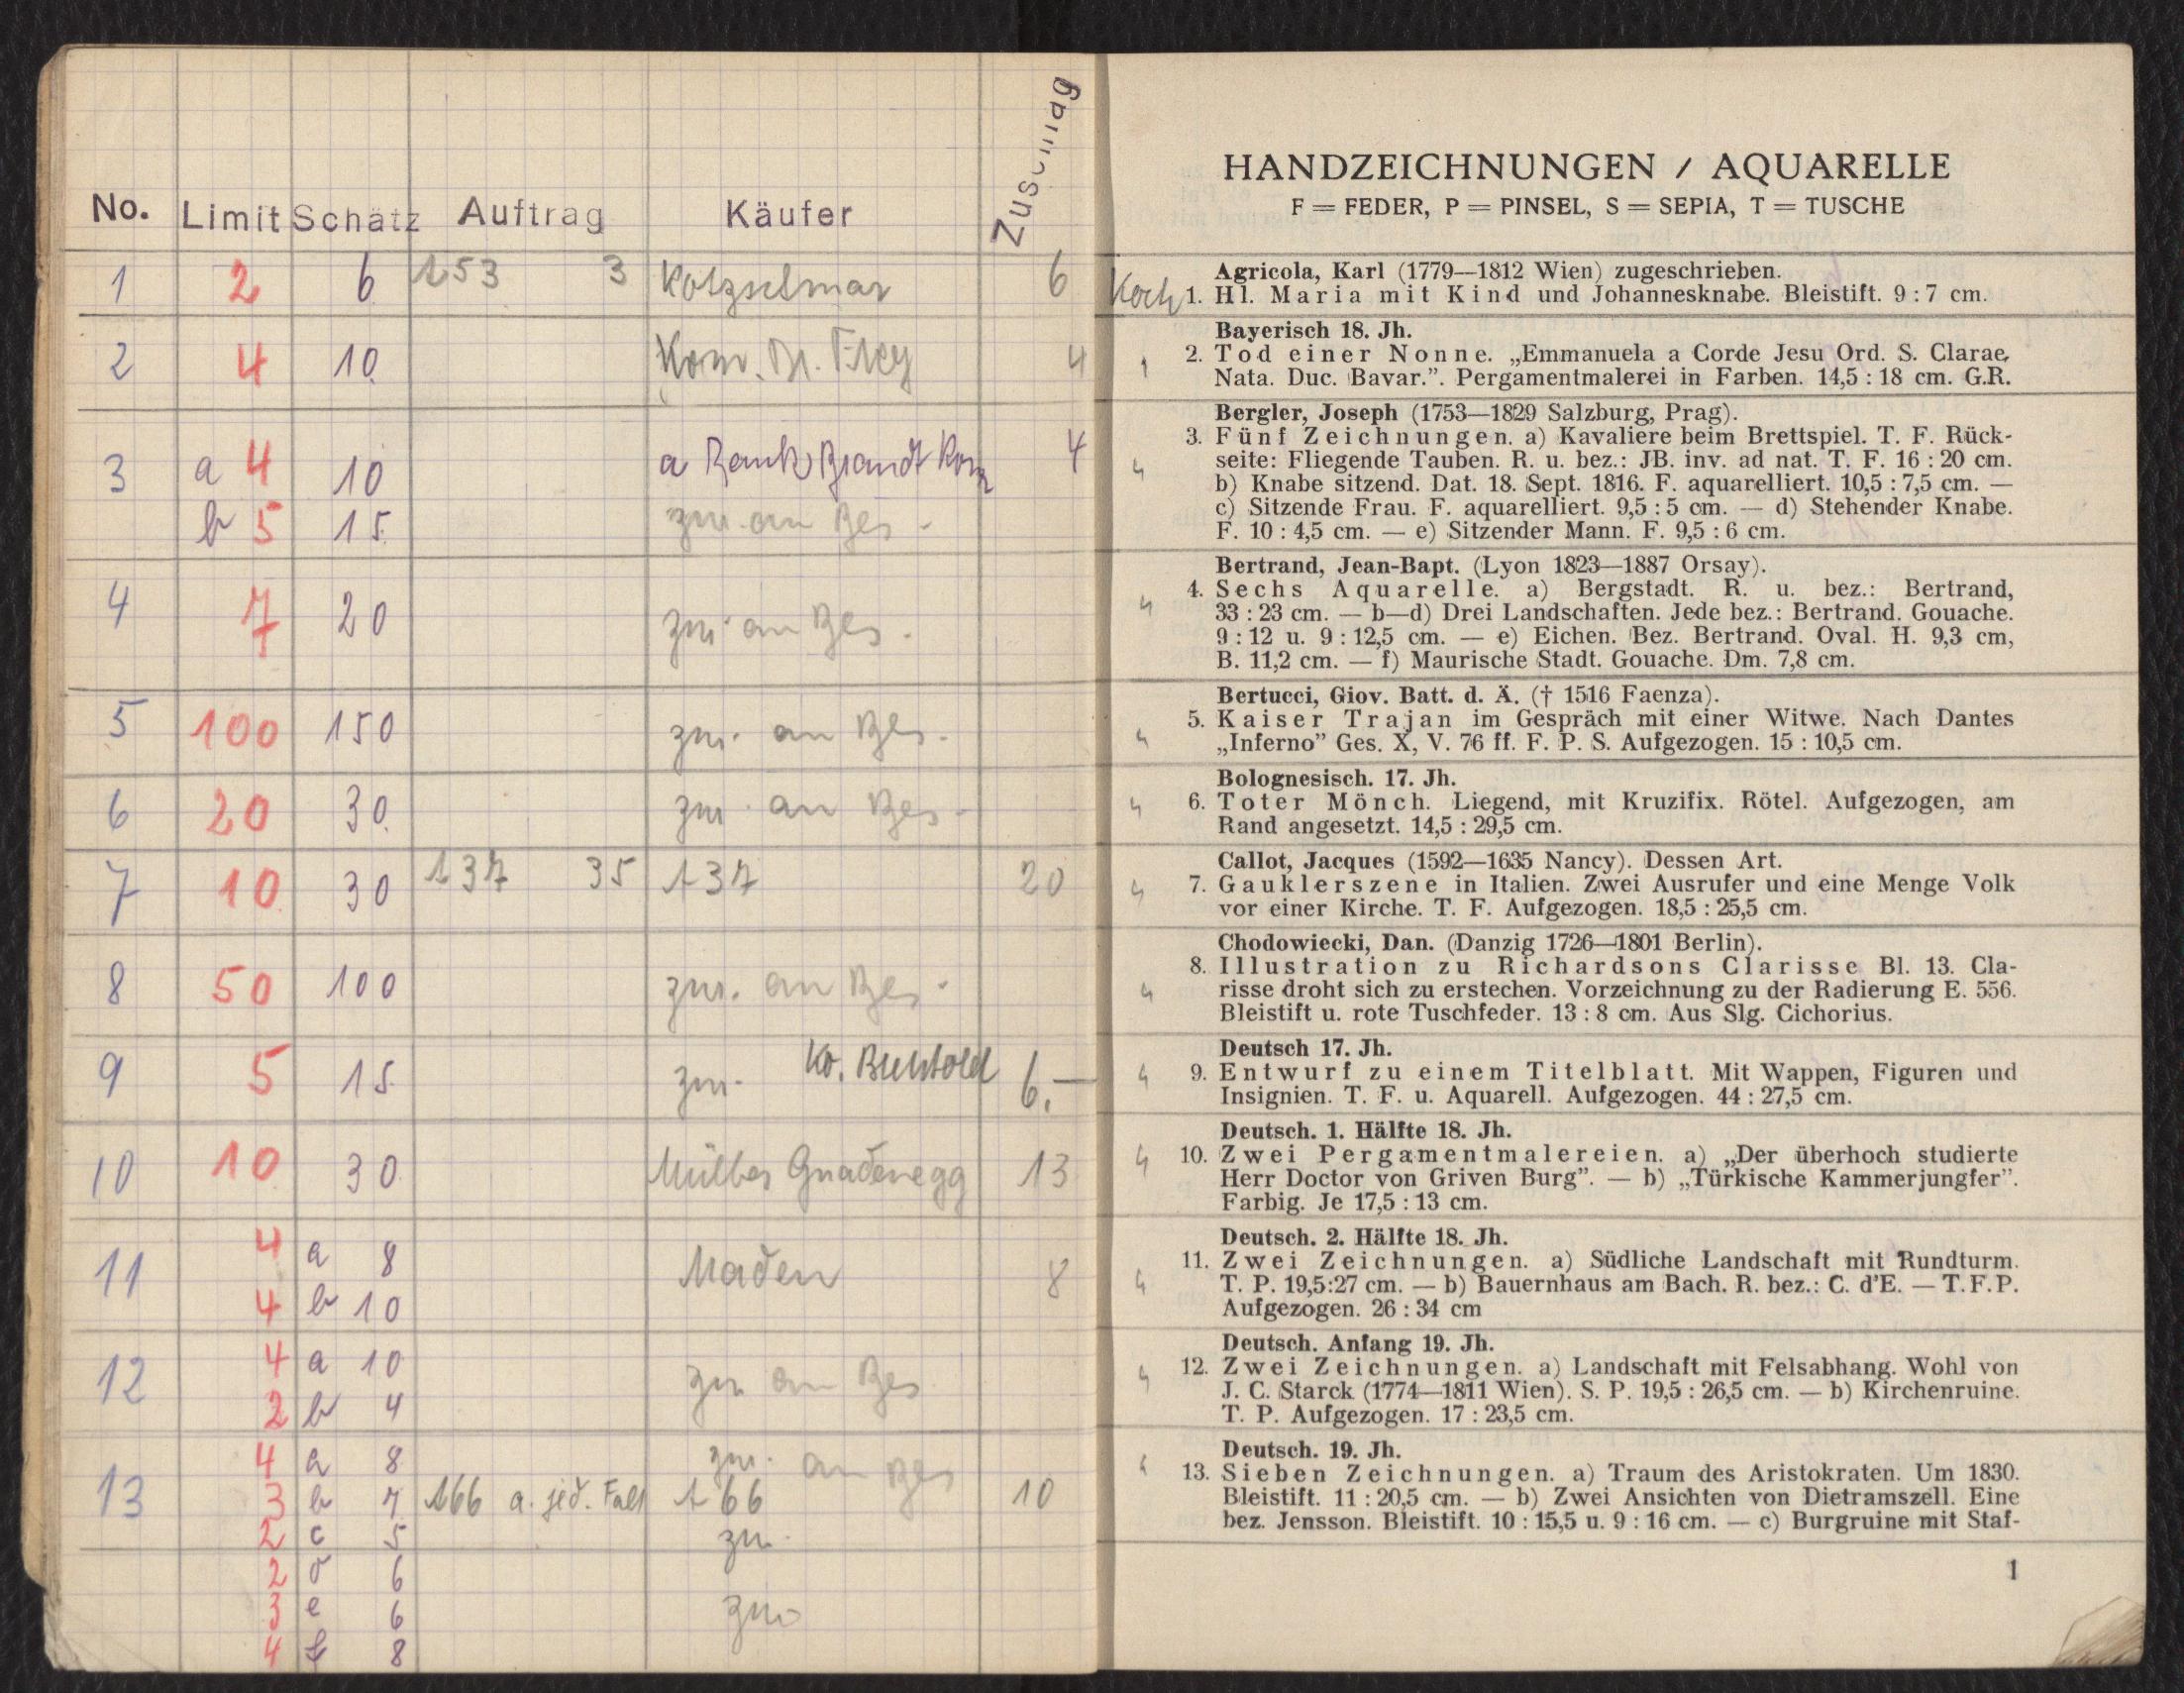 No. Limit Schätz Auftrag Käufer Zuschlag
1 2 6 153 3 Kotzschmar 6
2 4 10 Kom. Dr. Frey 4
3 a 4 10 a Bank Brandt Kom 4
b 5 15 zur. an Bes.
4 7 20 zur. an Bes.
5 100 150 zur. an Bes.
6 20 30 zur. an Bes.
7 10 30 137 35 137 20
8 50 100 zur. an Bes.
9 5 15 zur. Ko. 6.—
10 10 30 Gnadenegg 13
11 4 a 8 Maden 8
4 b 10
12 4 a 10 zur an Bes
2 b 4
4 a 8 zur. an Bes
13 3 b 7 166 a. jed. Fall 166 10
2 c 5 zur.
2 d 6
3 e 6 zur
4 f 8
HANDZEICHNUNGEN / AQUARELLE
F = FEDER, P = PINSEL, S = SEPIA, T = TUSCHE
Agricola, Karl (1779—1812 Wien) zugeschrieben.
Koch 1. Hl. Maria mit Kind und Johannesknabe. Bleistift. 9 : 7 cm.
Bayerisch 18. Jh.
2. Tod einer Nonne. „Emmanuela a Corde Jesu Ord. S. Clarae,
Nata. Duc. Bavar.”. Pergamentmalerei in Farben. 14,5 : 18 cm. G.R.
Bergler, Joseph (1753—1829 Salzburg, Prag).
3. Fünf Zeichnungen. a) Kavaliere beim Brettspiel. T. F. Rück-
seite: Fliegende Tauben. R. u. bez.: JB. inv. ad nat. T. F. 16 : 20 cm.
b) Knabe sitzend. Dat. 18. Sept. 1816. F. aquarelliert. 10,5 : 7,5 cm. —
c) Sitzende Frau. F. aquarelliert. 9,5 : 5 cm. — d) Stehender Knabe.
F. 10 : 4,5 cm. — e) Sitzender Mann. F. 9,5 : 6 cm.
Bertrand, Jean-Bapt. (Lyon 1823—1887 Orsay).
4. Sechs Aquarelle. a) Bergstadt. R. u. bez.: Bertrand,
33 : 23 cm. — b—d) Drei Landschaften. Jede bez.: Bertrand. Gouache.
9 : 12 u. 9 : 12,5 cm. — e) Eichen. Bez. Bertrand. Oval. H. 9,3 cm,
B. 11,2 cm. — f) Maurische Stadt. Gouache. Dm. 7,8 cm.
Bertucci, Giov. Batt. d. Ä. († 1516 Faenza).
5. Kaiser Trajan im Gespräch mit einer Witwe. Nach Dantes
„Inferno” Ges. X, V. 76 ff. F. P. S. Aufgezogen. 15 : 10,5 cm.
Bolognesisch. 17. Jh.
6. Toter Mönch. Liegend, mit Kruzifix. Rötel. Aufgezogen, am
Rand angesetzt. 14,5 : 29,5 cm.
Callot, Jacques (1592—1635 Nancy). Dessen Art.
7. Gauklerszene in Italien. Zwei Ausrufer und eine Menge Volk
vor einer Kirche. T. F. Aufgezogen. 18,5 : 25,5 cm.
Chodowiecki, Dan. (Danzig 1726—1801 Berlin).
8. Illustration zu Richardsons Clarisse Bl. 13. Cla-
risse droht sich zu erstechen. Vorzeichnung zu der Radierung E. 556.
Bleistift u. rote Tuschfeder. 13 : 8 cm. Aus Slg. Cichorius.
Deutsch 17. Jh.
9. Entwurf zu einem Titelblatt. Mit Wappen, Figuren und
Insignien. T. F. u. Aquarell. Aufgezogen. 44 : 27,5 cm.
Deutsch. 1. Hälfte 18. Jh.
10. Zwei Pergamentmalereien. a) „Der überhoch studierte
Herr Doctor von Griven Burg”. — b) „Türkische Kammerjungfer”.
Farbig. Je 17,5 : 13 cm.
Deutsch. 2. Hälfte 18. Jh.
11. Zwei Zeichnungen. a) Südliche Landschaft mit Rundturm.
T. P. 19,5:27 cm. — b) Bauernhaus am Bach. R. bez.: C. d'E. — T. F. P.
Aufgezogen. 26 : 34 cm
Deutsch. Anfang 19. Jh.
12. Zwei Zeichnungen. a) Landschaft mit Felsabhang. Wohl von
J. C. Starck (1774—1811 Wien). S. P. 19,5 : 26,5 cm. — b) Kirchenruine.
T. P. Aufgezogen. 17 : 23,5 cm.
Deutsch. 19. Jh.
13. Sieben Zeichnungen. a) Traum des Aristokraten. Um 1830.
Bleistift. 11 : 20,5 cm. — b) Zwei Ansichten von Dietramszell. Eine
bez. Jensson. Bleistift. 10 : 15,5 u. 9 : 16 cm. — c) Burgruine mit Staf-
1